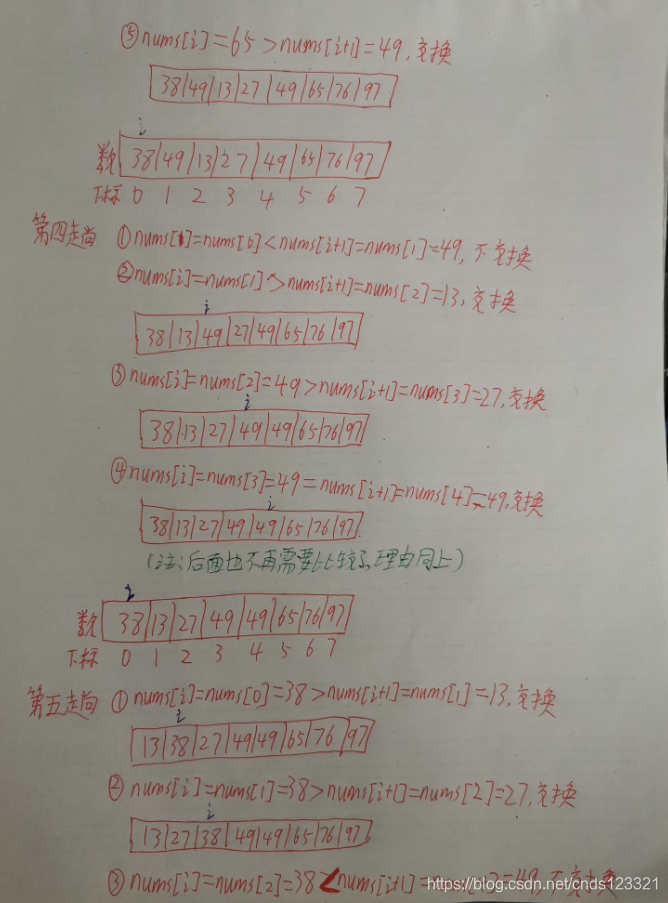 ⑤nums[i]=65>nums[i+1]=49,交换
38|49|13|27|49|65|76|97
i
数 38|49|13|27|49|65|76|97
下标 0 1 2 3 4 5 6 7
第四走尚 ①nums[0]=nums[0]<nums[i+1]=nums[1]=49, 不交换
②nums[i]=nums[1]>nums[i+1]=nums[2]=13,交换
i
38|13|49|27|49|65|76|97
③nums[i]=nums[2]=49>nums[i+1]=nums[3]=27,交换
i
38|13|27|49|49|65|76|97
④nums[i]=nums[3]=49=nums[i+1]=nums[4]=49,交换
i
38|13|27|49|49|65|76|97
(注:后面也不再需要比较了,理由同上)
i
数 38|13|27|49|49|65|76|97
下标 0 1 2 3 4 5 6 7
第五走尚 ①nums[i]=nums[0]=38>nums[i+1]=nums[1]=13,交换
i
13|38|27|49|49|65|76|97
②nums[i]=nums[1]=38>nums[i+1]=nums[2]=27,交换
i
13|27|38|49|49|65|76|97
③nums[i]=nums[2]=38<nums[i+1]=49,不交换
https://blog.csdn.net/cnds123321